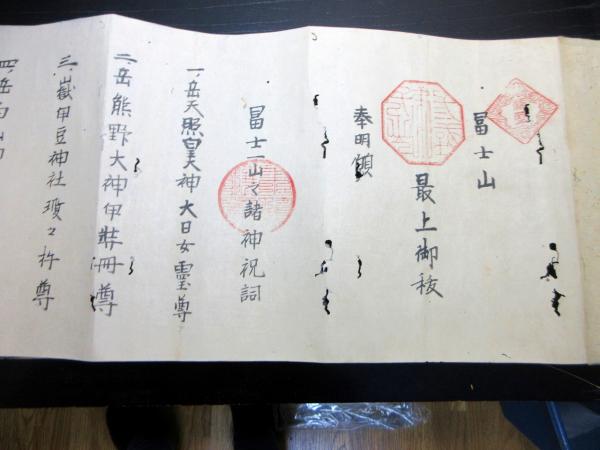 冨士山
最上御秡
奉明願
冨士一山之諸神祝詞
一、岳天照皇大神大日女靈尊
二、岳熊野大神伊弉冊尊
三、嶽伊豆神社瓊々杵尊
四、岳白山